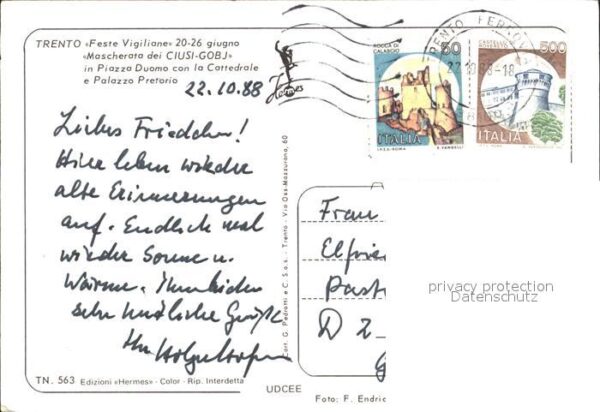 TRENTO «Feste Vigiliane» 20-26 giugno
«Mascherata dei CIUSI-GOBJ»
in Piazza Duomo con la Cattedrale
e Palazzo Pretorio
Hermes
22.10.88
Liebes Friedchen!
Hier leben wieder
alte Erinnerungen
auf. Endlich mal
wieder Sonne u.
Wärme. Ihnen beiden
sehr herzliche Grüße
Ihr
TN. 563 Edizioni «Hermes» - Color - Rip. Interdetta
Cart. G. Pedrotti e C. S.a.s. - Trento - Via Oss-Mazzurana, 60
UDCEE
Foto: F. Endric
ROCCA DI
CALASCIO
50
ITALIA
I.P.Z.S.-ROMA E. VANGELLI
CASTELLO
ROVERETO
500
ITALIA
TRENTO FERROV
Frau
Elfrie
Past
D 2
privacy protection
Datenschutz